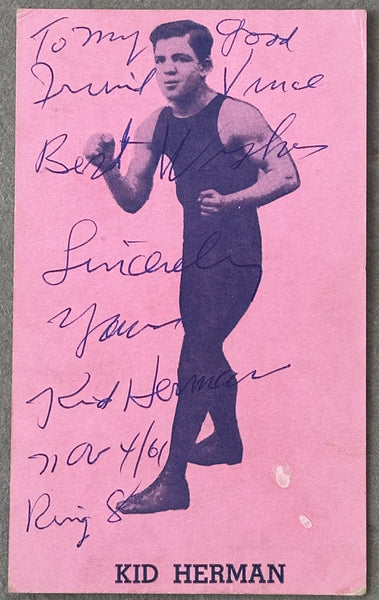 To My Good
Friend Vince
Best Wishes
Sincerely
Yours
Kid Herman
Nov 4/61
Ring 8
KID HERMAN